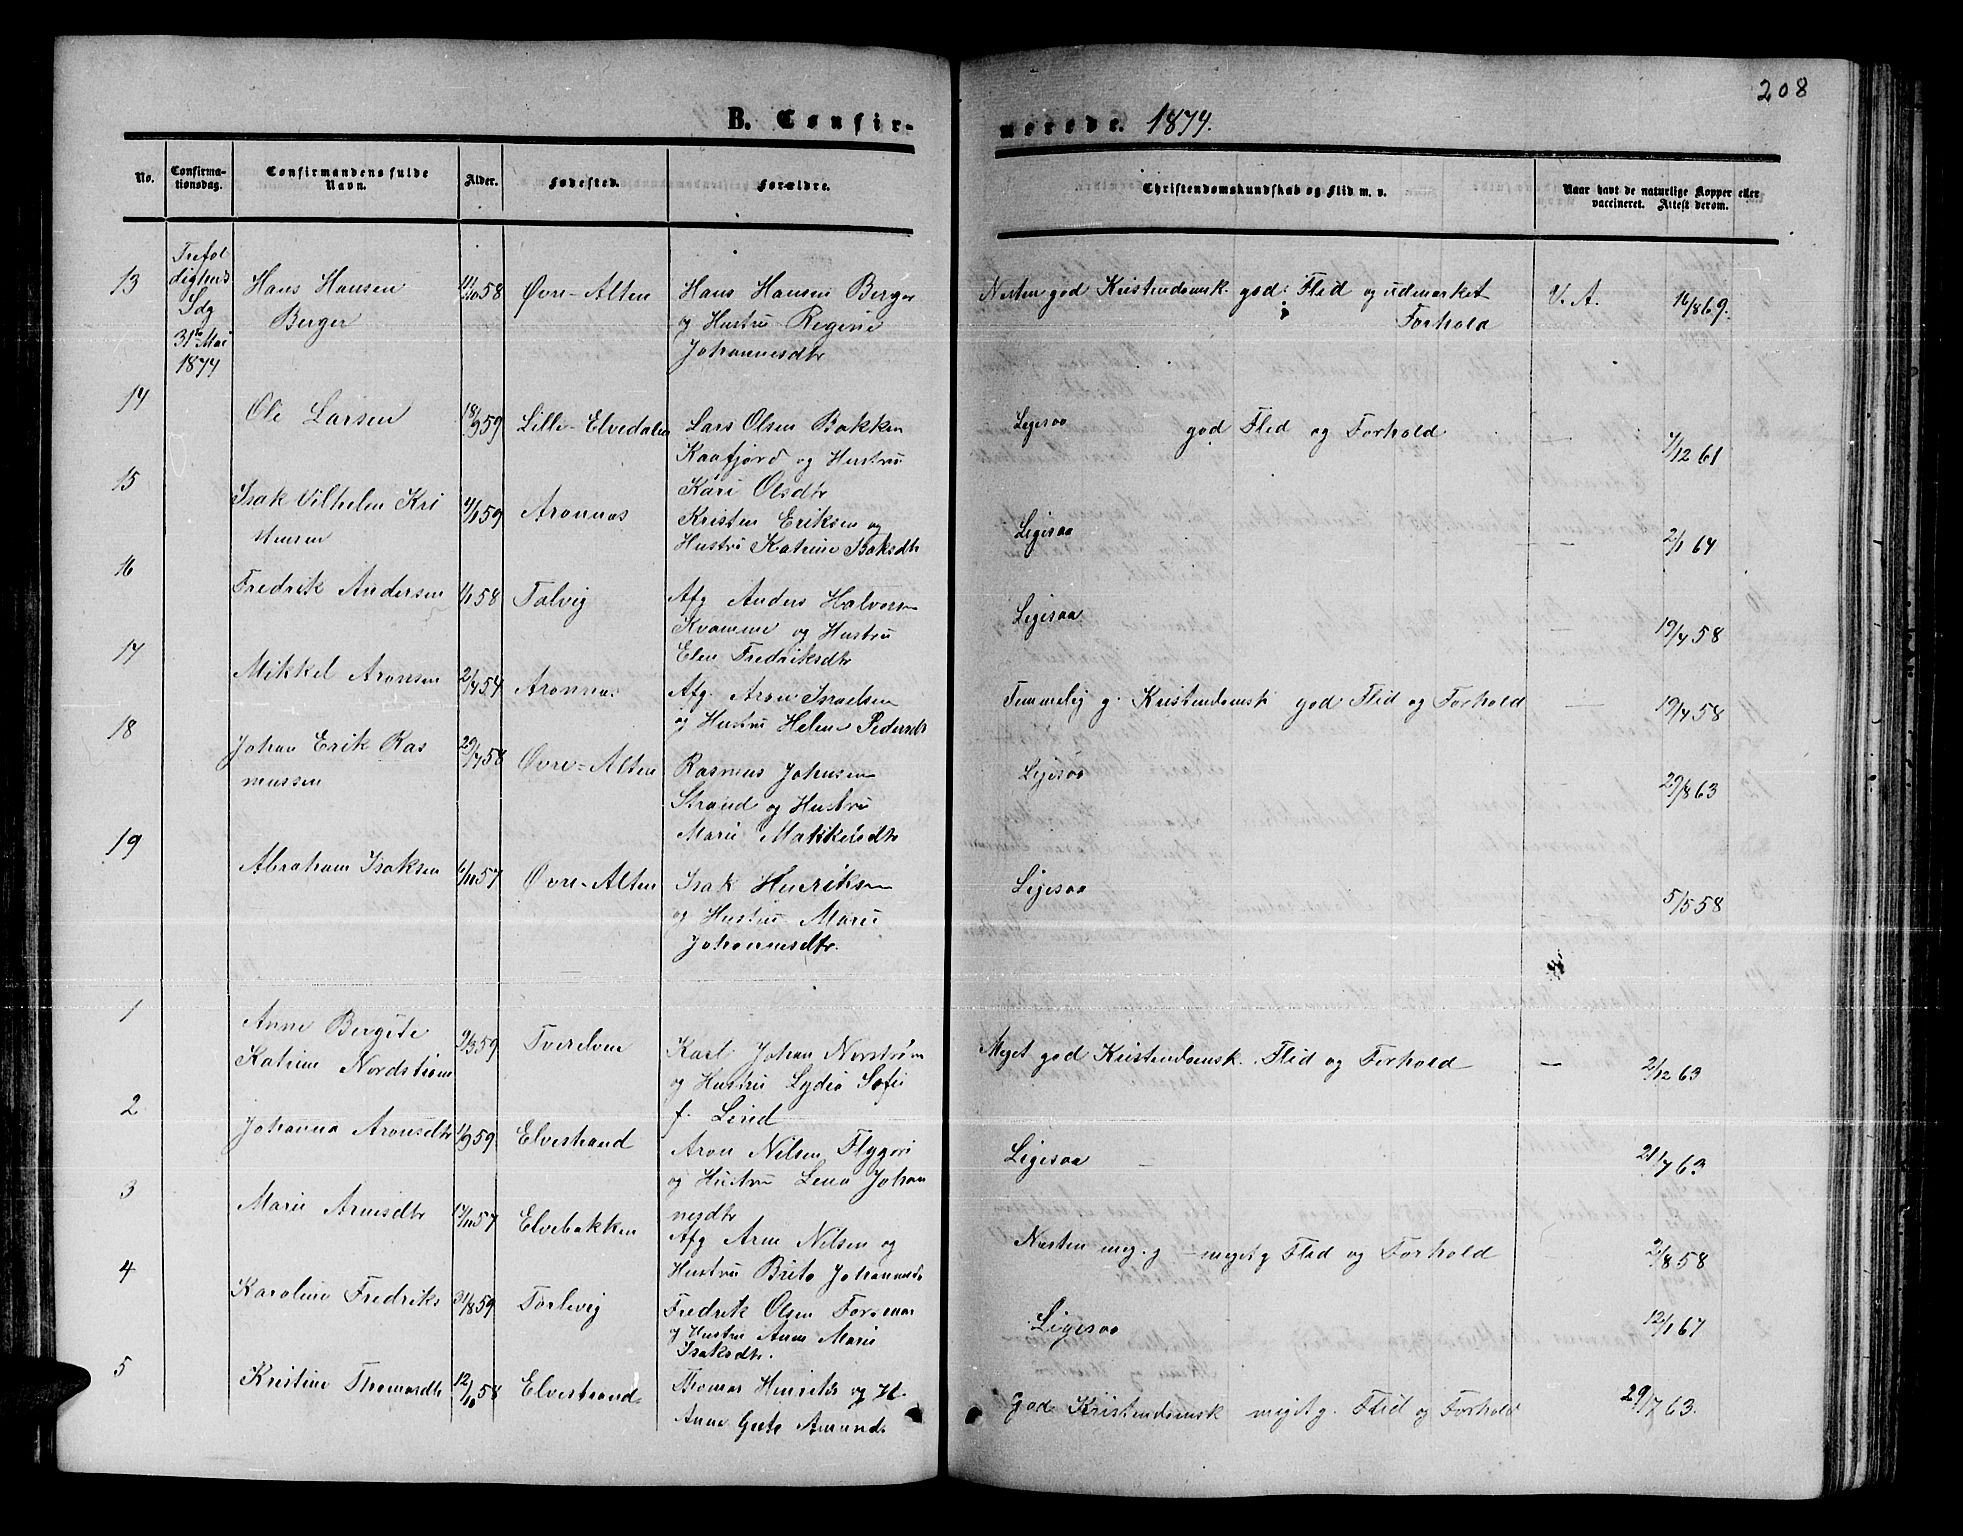 208
B. Confir-
merede. 1874.
No.
Confirma-
tionsdag.
Confirmandens fulde
Navn.
Alder.
Fødested.
Forældre.
Christendomskundskab og Flid m. v.
Naar havt de naturlige Kopper eller
vaccineret. Attest derom.
Trefol
digheds
Sdg
31te Mai
1874
13 Hans Hansen
Berger
11/10 58 Øvre-Alten
Hans Hansen Berger
og Hustru Regine
Johannesdtr
Næsten god Kristendomsk. god Flid og udmærket
Forhold
V. A. 16/8 69.
14 Ole Larsen 18/9 59 Lille-Elvedalen
Lars Olsen Bakken
Kaafjord og Hustru
Kari Olsdtr
Ligesaa god Flid og Forhold — 7/12 61
15 Isak Vilhelm Kri
stensen
4/1 59 Aronnæs
Kristen Eriksen og
Hustru Katrine Isaksdtr
Ligesaa — 2/1 64
16 Fredrik Andersen 1/1 58 Talvig
Afg Anders Halvorsen
Kvamme og Hustru
Elen Fredriksdtr
Ligesaa 19/4 58
17 Mikkel Aronsen 2/4 54 Aronnæs
Afg. Aron Israelsen
og Hustru Helene Pedersdtr
Temmelig g. Kristendomsk god Flid og Forhold — 19/4 58
18 Johan Erik Ras
mussen
29/7 58 Øvre-Alten
Rasmus Johnsen
Strand og Hustru
Marie Mikkelsdtr
Ligesaa 29/8 63
19 Abraham Isaksen 6/10 57 Øvre-Alten
Isak Henriksen
og Hustru Marie
Johannesdtr.
Ligesaa 5/5 58
1 Anne Bergite
Katrine Nordstrøm
9/3 59 Tverelven
Karl Johan Norstrøm
og Hustru Lydia Sofie
f. Lind
Meget god Kristendomsk. Flid og Forhold — 2/12 63
2 Johanna Aronsdtr 1/9 59 Elvestrand
Aron Nilsen Flygari
og Hustru Lena Johan
nesdtr
Ligesaa — 21/7 63
3 Marie Arnesdtr 17/10 57 Elvebakken
Afg Arne Nilsen og
Hustru Brita Johannesdr
Næsten meg. g — meget g Flid og Forhold 2/8 58
4 Karoline Fredriks 31/8 59 Torlevig
Fredrik Olsen Forsmar
og Hustru Anne Marie
Isaksdtr.
Ligesaa 12/1 67
5 Kristine Thomasdtr 12/10 58 Elvestrand
Thomas Henriks og H.
Anne Amunds
God Kristendomsk meget g. Flid og Forhold 29/7 63.